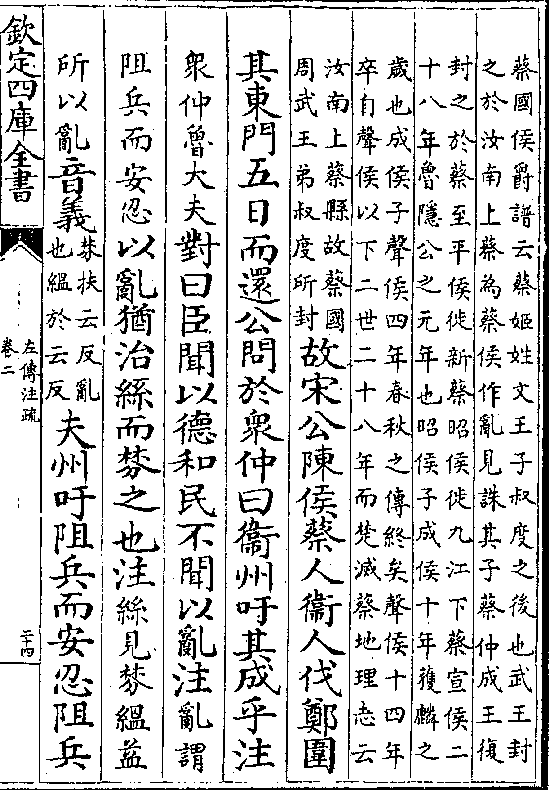 蔡國侯爵譜云蔡姬姓文王子叔度之後也武王封
之於汝南上蔡為蔡侯作亂見誅其子蔡仲成王復
封之於蔡至平侯徙新蔡昭侯徙九江下蔡宣侯二
十八年魯隱公之元年也昭侯子成侯十年獲麟之
歲也成侯子聲侯四年春秋之傳終矣聲侯十四年
卒自聲侯以下二世二十八年而楚滅蔡地理志云
汝南上蔡縣故蔡國
周武王弟叔度所封
故宋公陳侯蔡人衞人伐鄭圍
其東門五日而還公問於衆仲曰衞州吁其成乎注
衆仲魯大夫對曰臣聞以德和民不聞以亂注亂謂
阻兵而安忍以亂猶治絲而棼之也注絲見棼緼益
所以亂音義
棼扶云反亂
也緼於云反
夫州吁阻兵而安忍阻兵
欽定四庫全書
左傳注疏
卷二
二十四